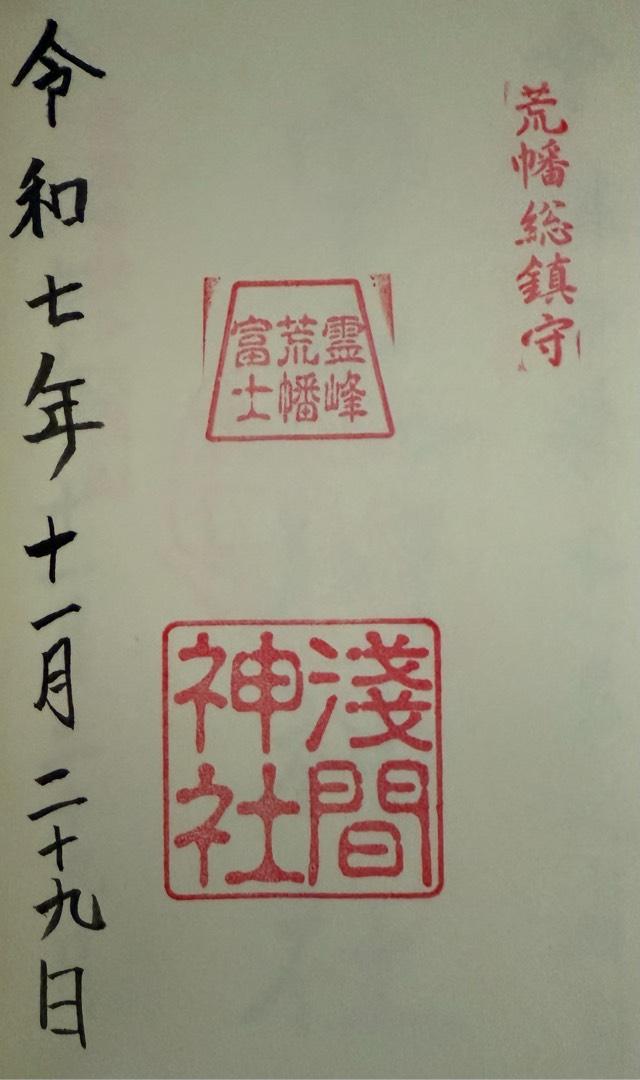 荒幡総鎮守
霊峰
荒幡
富士
淺間
神社
令和七年十一月二十九日